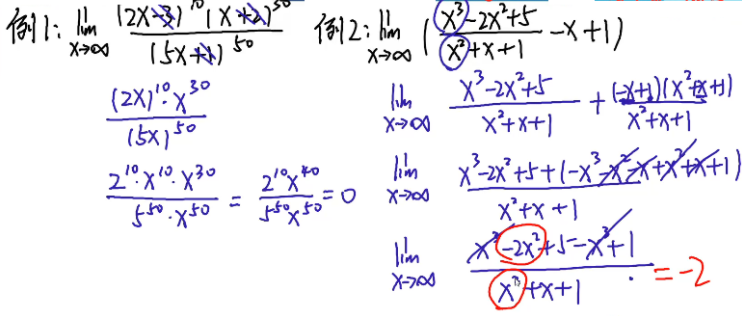 例1: lim x→∞ (2x-3)^10 (x+2)^30 / (5x+1)^50
(2x)^10 · x^30 / (5x)^50
2^10 · x^10 · x^30 / 5^50 · x^50 = 2^10 x^40 / 5^50 x^50 = 0
例2: lim x→∞ (x³-2x²+5 / x²+x+1 -x+1)
lim x→∞ x³-2x²+5 / x²+x+1 + (-x+1)(x²+x+1) / x²+x+1
lim x→∞ x³-2x²+5+(-x³-x²-x+x²+x+1) / x²+x+1
lim x→∞ x³-2x²+5-x³+1 / x²+x+1 = -2